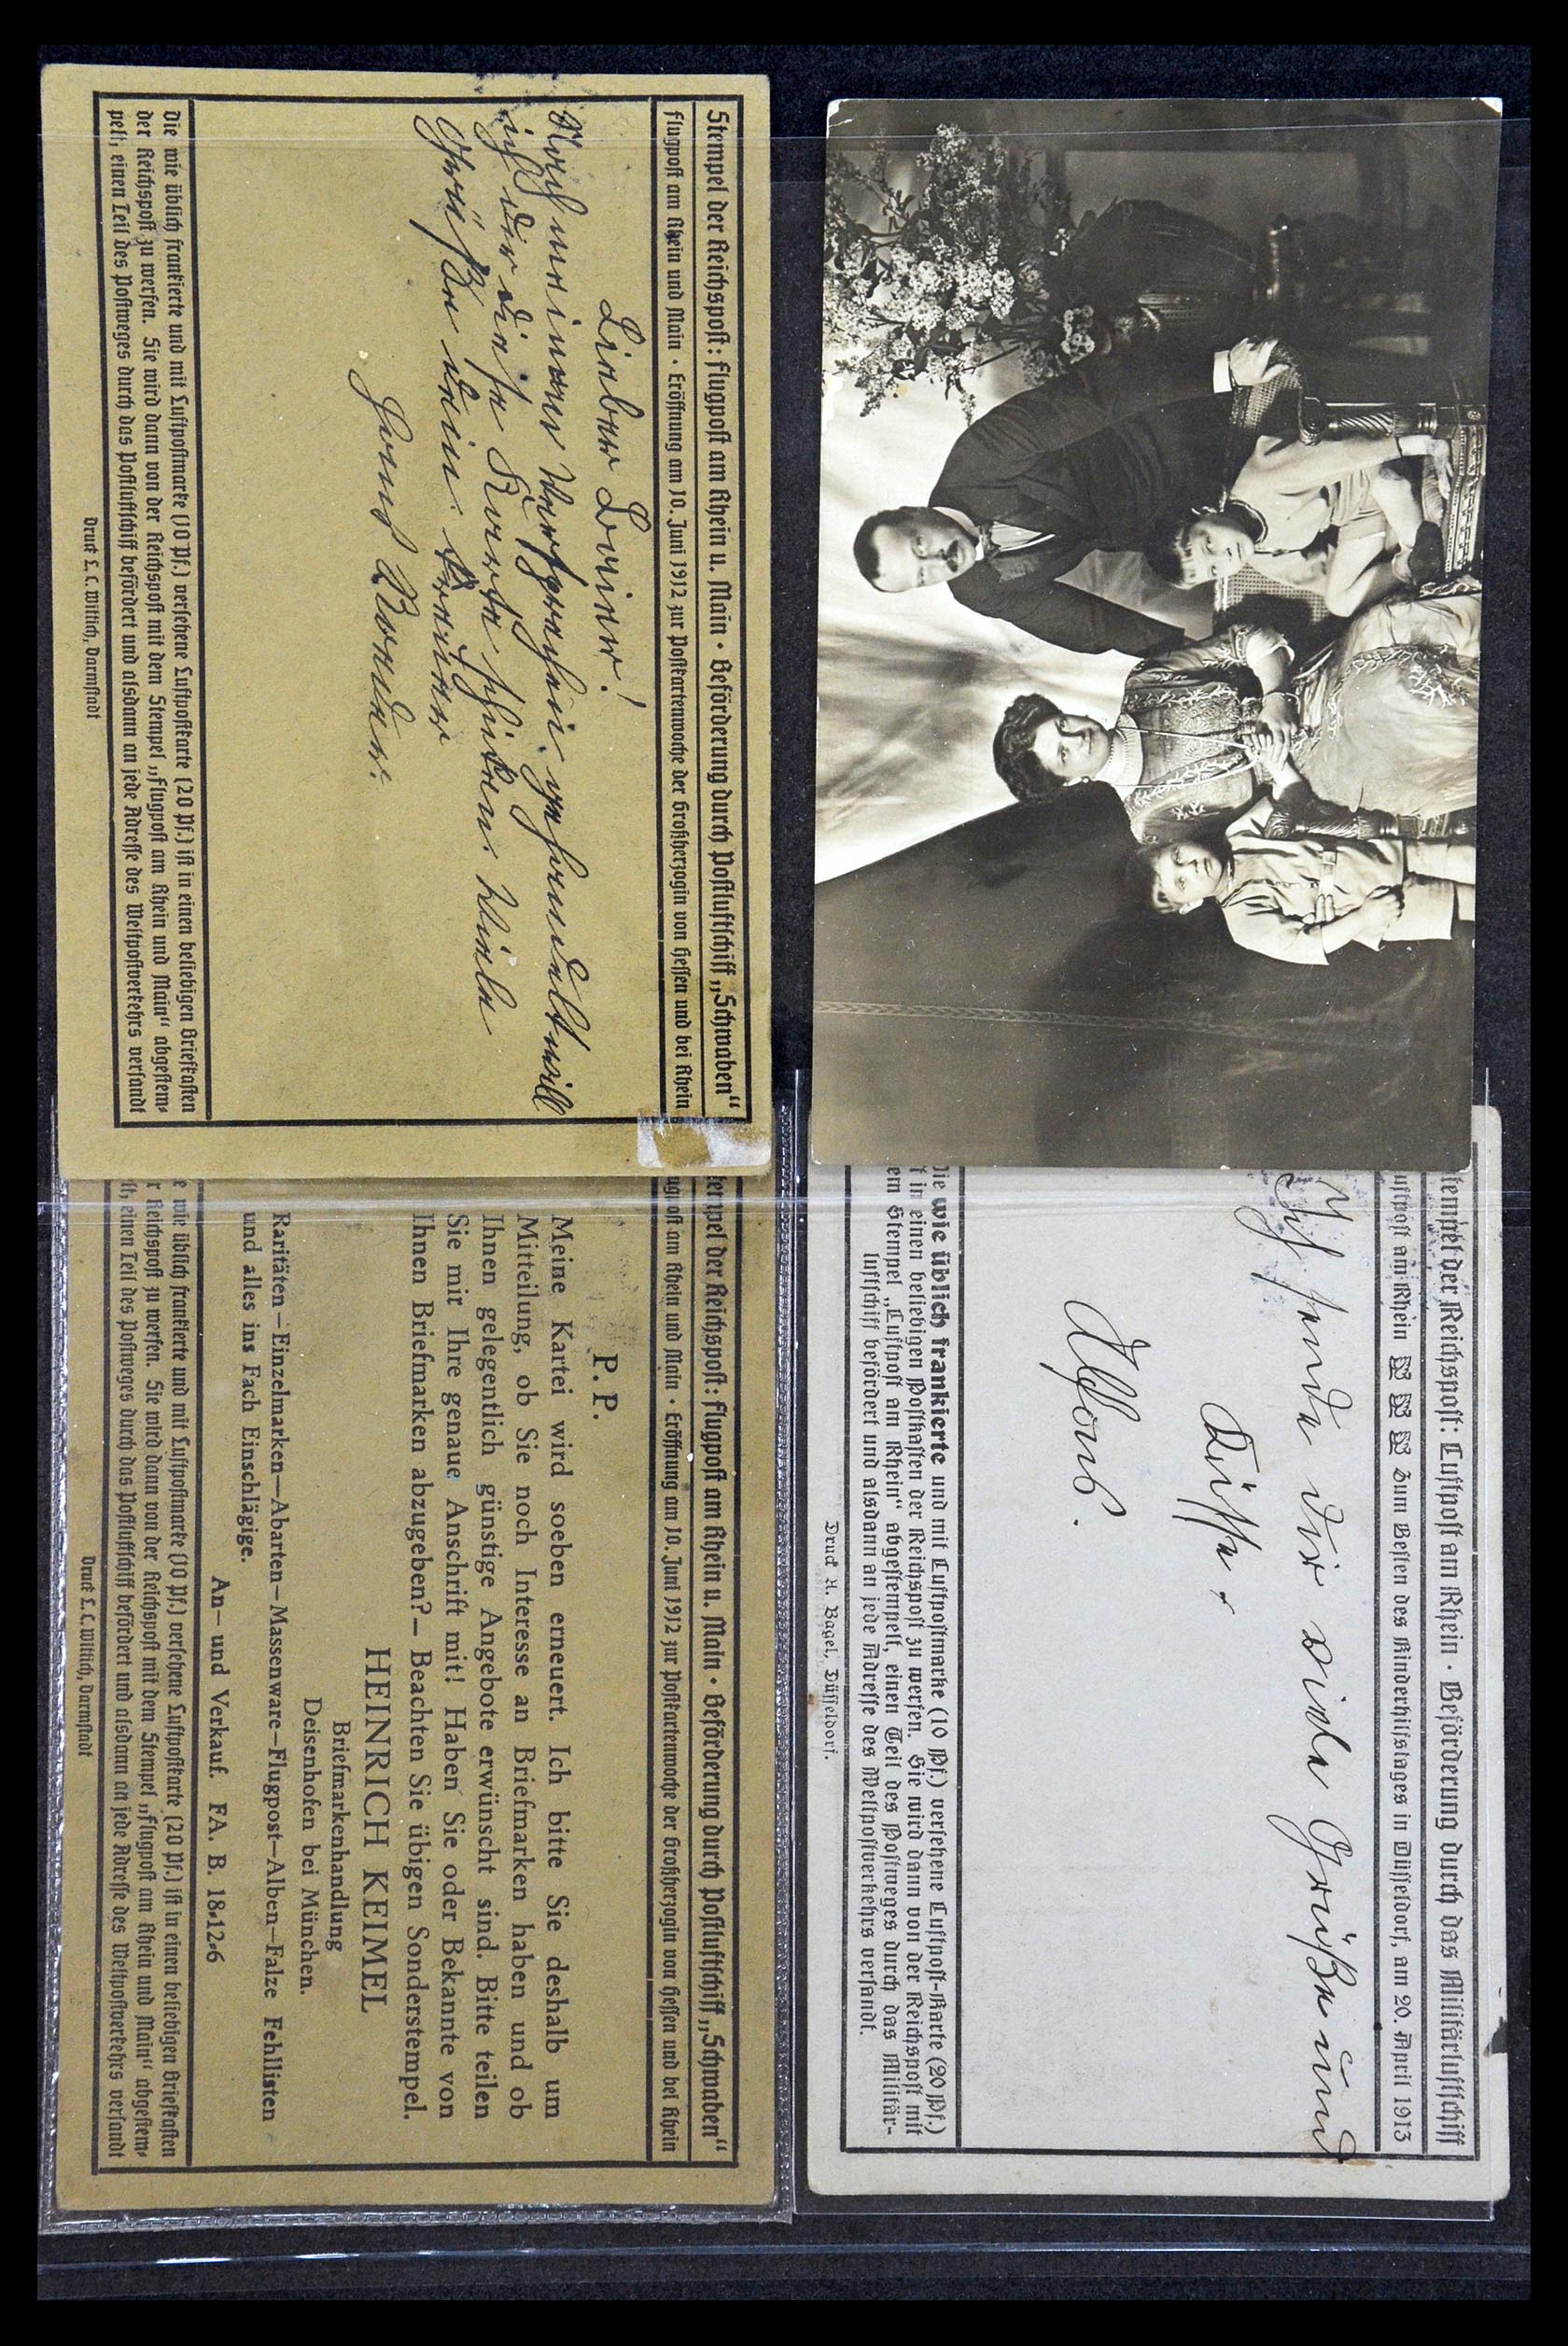 Stempel der Reichspost: Flugpost am Rhein u. Main · Beförderung durch Postluftschiff „Schwaben“
Flugpost am Rhein und Main · Eröffnung am 10. Juni 1912 zur Postkartenwoche der Großherzogin von Hessen und bei Rhein
Lieber Beiner!
Noch meinem Versprechen gesendet will
ich dir diese Karte schicken. Viele
Grüße dein treuer
die wie üblich frankierte und mit Luftpostmarke (10 Pf.) versehene Luftpostkarte (20 Pf.) ist in einen beliebigen Briefkasten
der Reichspost zu werfen. Sie wird dann von der Reichspost mit dem Stempel „Flugpost am Rhein und Main“ abgestem-
pelt, einen Teil des Postweges durch das Postluftschiff befördert und alsdann an jede Adresse des Weltpostverkehrs versandt
Druck L. C. Wittich, Darmstadt
tempel der Reichspost: Luftpost am Rhein · Beförderung durch das Militärluftschiff
uftpost am Rhein Zum Besten des Kinderhilfstages in Düsseldorf, am 20. April 1913
Ich sende dir viele Grüße und
Küsse.
Alfons.
die wie üblich frankierte und mit Luftpostmarke (10 Pf.) versehene Luftpost-Karte (20 Pf.)
t in einen beliebigen Postkasten der Reichspost zu werfen. Sie wird dann von der Reichspost mit
em Stempel „Luftpost am Rhein“ abgestempelt, einen Teil des Postweges durch das Militär-
luftschiff befördert und alsdann an jede Adresse des Weltpostverkehrs versandt.
Druck A. Bagel, Düsseldorf.
tempel der Reichspost: Flugpost am Rhein u. Main · Beförderung durch Postluftschiff „Schwaben“
ugpost am Rhein und Main · Eröffnung am 10. Juni 1912 zur Postkartenwoche der Großherzogin von Hessen und bei Rhein
P. P.
Meine Kartei wird soeben erneuert. Ich bitte Sie deshalb um
Mitteilung, ob Sie noch Interesse an Briefmarken haben und ob
Ihnen gelegentlich günstige Angebote erwünscht sind. Bitte teilen
Sie mir Ihre genaue Anschrift mit! Haben Sie oder Bekannte von
Ihnen Briefmarken abzugeben?— Beachten Sie übigen Sonderstempel.
HEINRICH KEIMEL
Briefmarkenhandlung
Deisenhofen bei München.
Raritäten—Einzelmarken—Abarten—Massenware—Flugpost—Alben—Falze Fehllisten
und alles ins Fach Einschlägige.
An— und Verkauf. FA. B. 18-12-6
e wie üblich frankierte und mit Luftpostmarke (10 Pf.) versehene Luftpostkarte (20 Pf.) ist in einen beliebigen Briefkasten
r Reichspost zu werfen. Sie wird dann von der Reichspost mit dem Stempel „Flugpost am Rhein und Main“ abgestem-
lt, einen Teil des Postweges durch das Postluftschiff befördert und alsdann an jede Adresse des Weltpostverkehrs versandt
Druck L. C. Wittich, Darmstadt